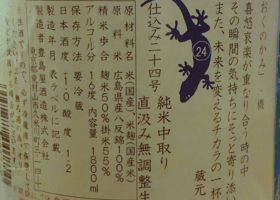 おくのかみ」・楯
喜怒哀楽が重なり合う時の中
その瞬間の気持ちにそっと寄り添い
また、未来を変えるチカラの一杯
蔵元
24
仕込み二十四号
純米中取り
直汲み無調整生
原材料名 米(国産)、米麹(国産米)
原料米 広島県産八反錦100%
精米歩合 麹米50%掛米55%
アルコール分 16度 内容量 1800ml
保存方法 要冷蔵
日本酒度 +1.0 酸度 1.2
製造年月 表ラベルに記載
製造者 豊島屋酒造株式会社
東京都東村山市久米川町三-一四-十